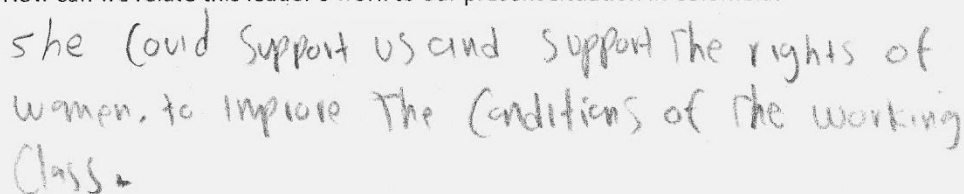 she Could Support us and support The rights of
women. to improve The Conditions of The working
Class.